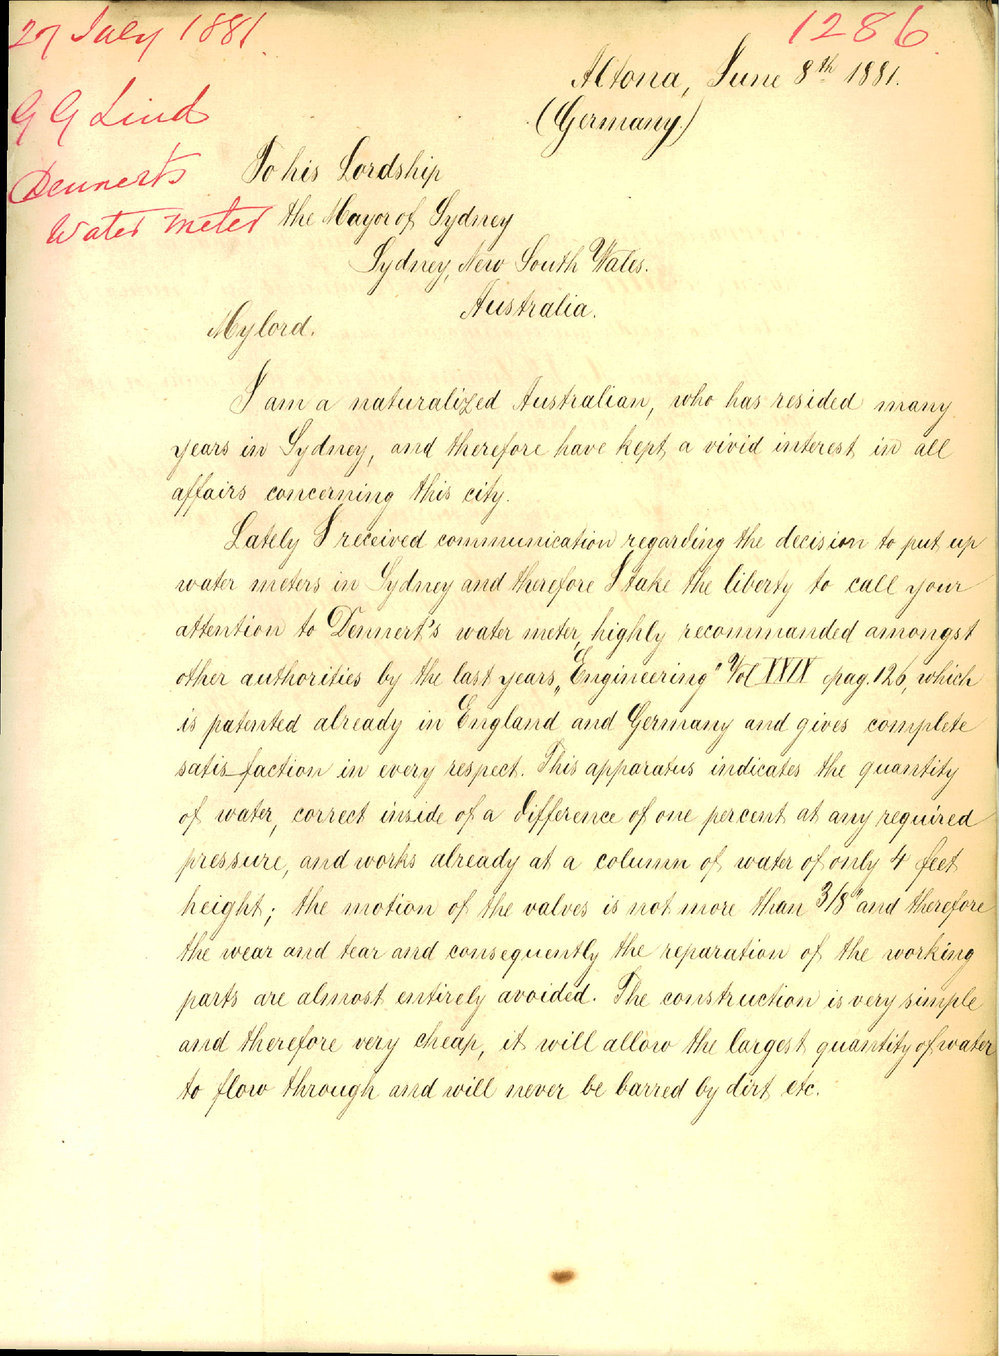 27 July 1881.
1286
G G Lind
Dennert's
Water meter
Altona, June 8th 1881.
(Germany.)
To his Lordship
the Mayor of Sydney
Sydney, New South Wales.
Australia.
Mylord.
I am a naturalized Australian, who has resided many
years in Sydney, and therefore have kept a vivid interest in all
affairs concerning this city.
Lately I received communication regarding the decision to put up
water meters in Sydney and therefore I take the liberty to call your
attention to Dennert's water meter, highly recommanded amongst
other authorities by the last years „Engineering" Vol XXIX pag. 126, which
is patented already in England and Germany and gives complete
satisfaction in every respect. This apparatus indicates the quantity
of water, correct inside of a difference of one percent at any required
pressure, and works already at a column of water of only 4 feet
height; the motion of the valves is not more than 3/8" and therefore
the wear and tear and consequently the reparation of the working
parts are almost entirely avoided. The construction is very simple
and therefore very cheap, it will allow the largest quantity of water
to flow through and will never be barred by dirt etc.